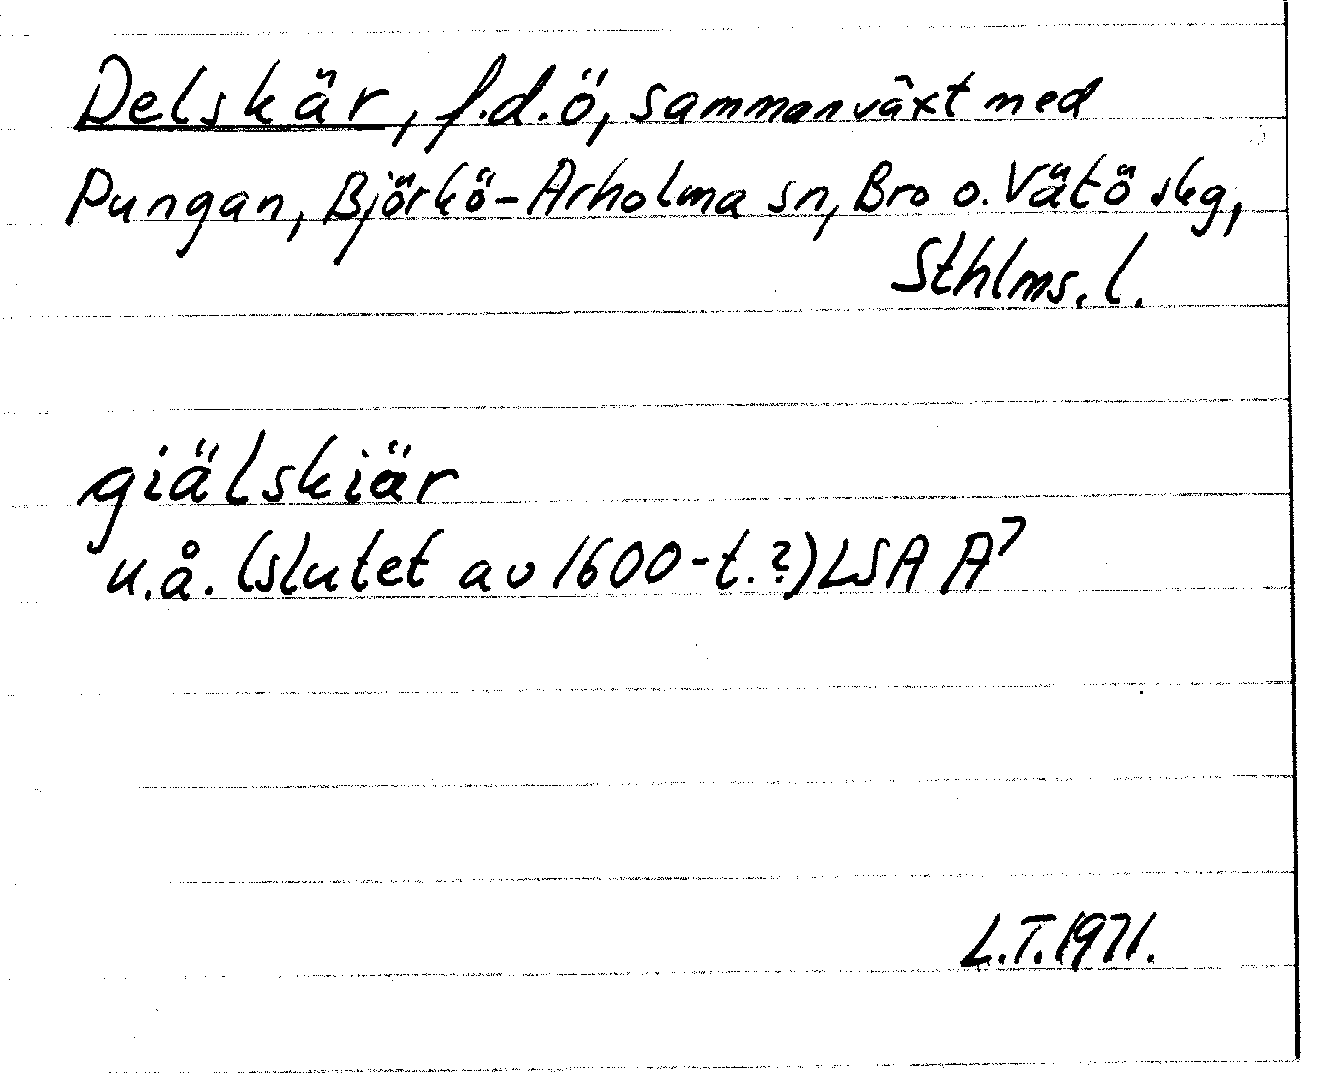 Delskär, f.d.ö, sammanväxt med
Pungan, Björkö-Arholma sn, Bro o. Vätö skg,
Sthlms. l.
giälskiär
u.å. (slutet av 1600-t.?) LSA A⁷
L.T. 1971.